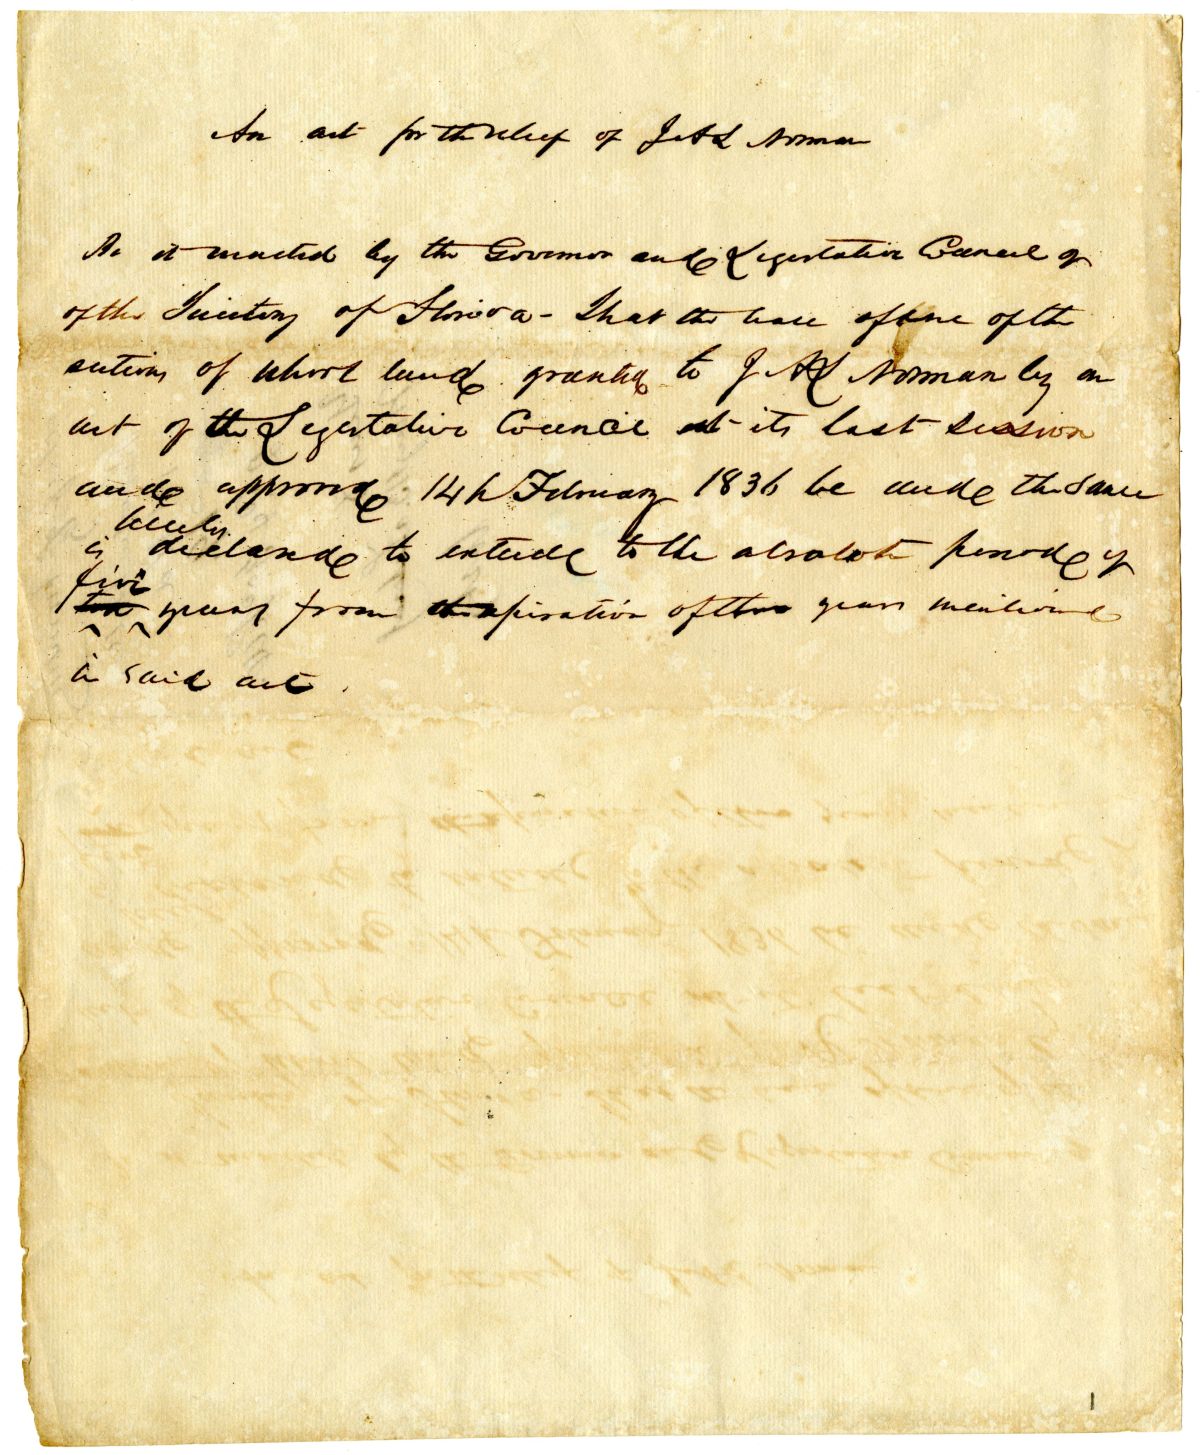 An act for the relief of J A L Norman
Be it enacted by the Governor and Legislative Council of
of the Territory of Florida - That the lease of one of the
sections of school land granted to J A L Norman by an
act of the Legislative Council at its last session
and approved 14th February 1836 be and the same
hereby
is declared to extend to the absolute period of
five
ten years from the expiration of the years mentioned
in said act.
1